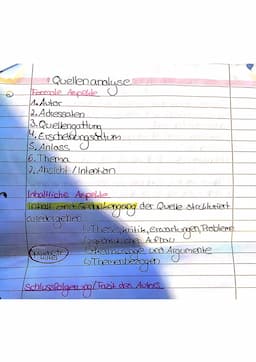 Quellenanalyse
Formale Aspekte
1. Autor
2. Adressaten
3. Quellengattung
4. Erscheinungsdatum
5. Anlass
6. Thema
7. Absicht / Intention
Inhaltliche Aspekte
Inhalt und Gedankengang der Quelle strukturiert
wiedergeben
Thesen, Kritik, Erwartungen, Probleme
Aufbau
und Argumente
Themenbezogen
Schlussfolgerung / Fazit des Autors